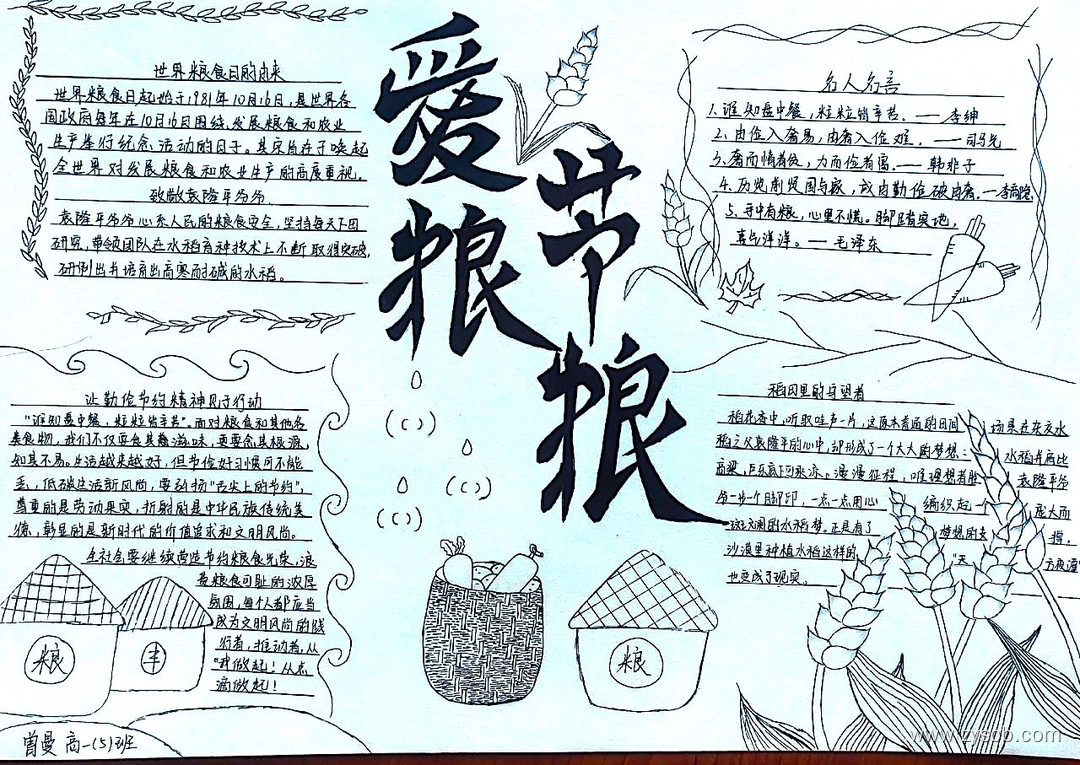 爱
粮
节
粮
世界粮食日的由来
世界粮食日起始于1981年10月16日,是世界各
国政府每年在10月16日围绕发展粮食和农业
生产举行纪念活动的日子。其宗旨在于唤起
全世界对发展粮食和农业生产的高度重视.
致敬袁隆平爷爷.
袁隆平爷爷心系人民的粮食安全,坚持每天下田
研究,带领团队在水稻育种技术上不断取得突破,
研制出并培育出高寒耐碱的水稻。
名人名言
1.谁知盘中餐,粒粒皆辛苦.——李绅
2、由俭入奢易,由奢入俭难.——司马光
3、奢而惰者贫,力而俭者富.——韩非子
4、历览前贤国与家,成由勤俭破由奢.—李商隐
5、手中有粮,心里不慌。脚踏实地,
喜气洋洋。——毛泽东
让勤俭节约精神见于行动
"谁知盘中餐,粒粒皆辛苦".面对粮食和其他各
类食物,我们不仅要食其尝滋味,更要念其根源,
知其不易。生活越来越好,但节俭好习惯可不能
丢,低碳生活新风尚,要弘扬"舌尖上的节约",
尊重的是劳动果实,折射的是中华民族传统美
德,彰显的是新时代的价值追求和文明风尚。
全社会要继续营造节约粮食光荣,浪
费粮食可耻的浓厚
氛围,每个人都应当
成为文明风尚的践
行者,推动者,从
"我做起!从点
滴做起!
稻田里的守望者
稻花香中,听取哇声一片,这原本普通的田间
场景在杂交水
稻之父袁隆平的心中,却形成了一个大大的梦想:
水稻有两比
高粱,
下可乘凉。漫漫征程,唯理想者胜
袁隆平爷
每一步一个脚印,一点一点用心
编织起一
庞大而
斑斓的水稻梦,正是有了
梦想的
撑,
沙漠里种植水稻这样的
"天
也变成了现实。
粮
丰
粮
曾曼 高一(5)班
www.zyscb.com